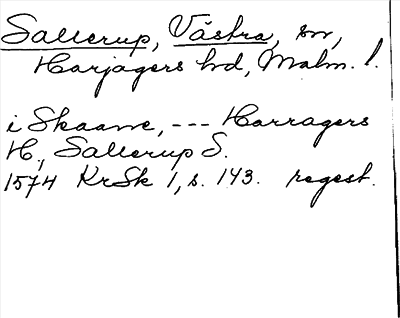 Sallerup, Västra, sn,
Harjagers hd, Malm. l.
i Skaane, --- Harragers
H., Sallerup S.
1574 KrSk 1, s. 143. regest.